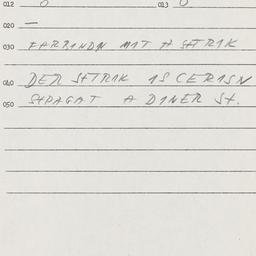 012 0 013 0
020 —
030 FARRINDN MIT A SHTRIK
040 DER SHTRIK IS CERISN
050 SHPAGAT A DINER SH.